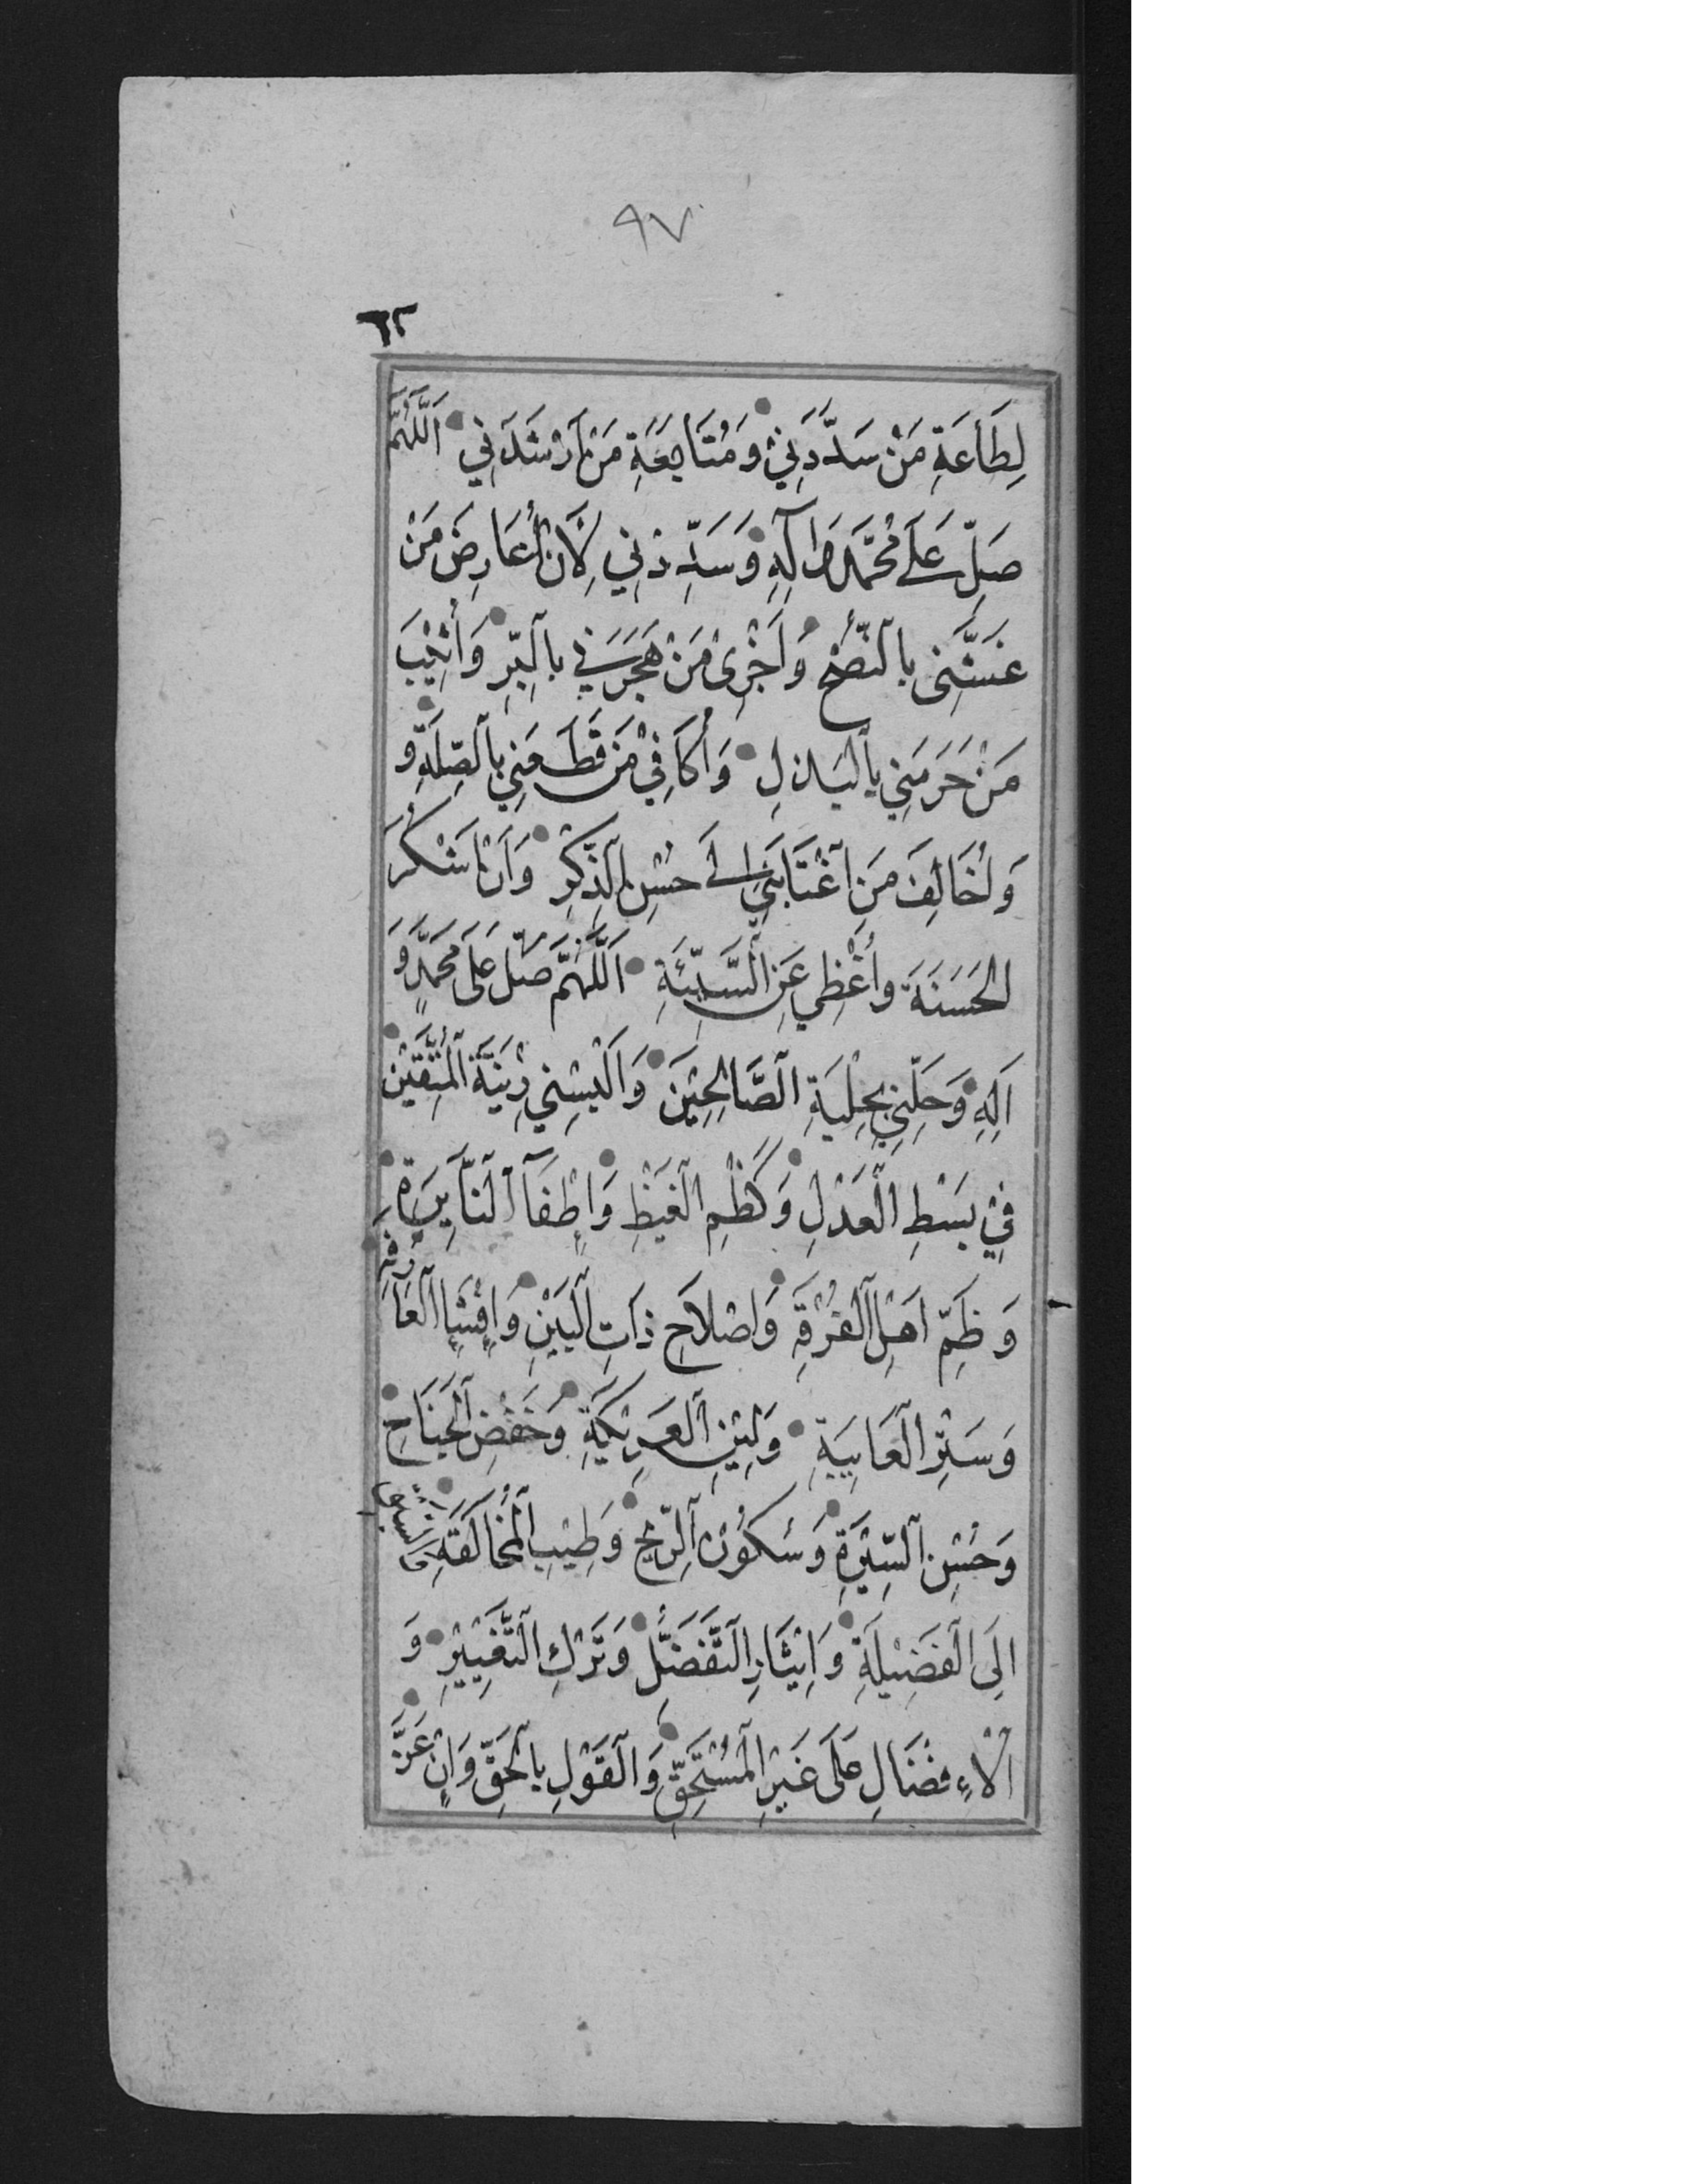 ٩٧
٦٢
لِطَاعَةِ مَنْ سَدَّدَنِيْ وَمُتَابِعَةِ مَنْ اَرْشَدَنِي اَللّٰهُمَّ
صَلِّ عَلَى مُحَمَّدٍ وَاٰلِهِ وَسَدِّدْنِي لِاَنْ اُعَارِضَ مَنْ
غَشَّنِى بِالنُّصْحِ وَاَجْزِىَ مَنْ هَجَرَنِي بِالْبِرِّ وَاُثِيْبَ
مَنْ حَرَمَنِي بِالْبَذْلِ وَاُكَافِيْ مَنْ قَطَعَنِي بِالصِّلَةِ وَ
وَاُخَالِفَ مَنِ اغْتَابَنِي اِلَى حُسْنِ الذِّكْرِ وَاَنْ اَشْكُرَ
الحَسَنَةَ وَاُغْظِي عَنِ السَّيِّئَةِ اَللّٰهُمَّ صَلِّ عَلَى مُحَمَّدٍ وَ
اَلِهِ وَحَلِّنِي بِحِلْيَةِ الصَّالِحِيْنَ وَاَلْبِسْنِي زِيْنَةَ الْمُتَّقِيْنَ
فِيْ بَسْطِ الْعَدْلِ وَكَظْمِ الْغَيْظِ وَاِطْفَآءِ النَّايِرَةِ
وَظَمِّ اَهْلِ الْفُرْقَةِ وَاِصْلَاحِ ذَاتِ الْبَيْنِ وَاِفْشَاءِ الْعَارِفَةِ
وَسَتْرِ الْعَايِبَةِ وَلِيْنِ الْعَرِيْكَةِ وَخَفْضِ الْجَنَاحِ
وَحُسْنِ السِّيْرَةِ وَسُكُوْنِ الرِّيْحِ وَطِيْبِ الْمُخَالَقَةِ وَالسَّبْقِ
اِلَى الْفَضِيْلَةِ وَاِيْثَارِ التَّفَضُّلِ وَتَرْكِ التَّغْيِيْرِ وَ
الْاِفْضَالِ عَلَى غَيْرِ الْمُسْتَحِقِّ وَالْقَوْلِ بِالْحَقِّ وَاِنْ عَزَّ